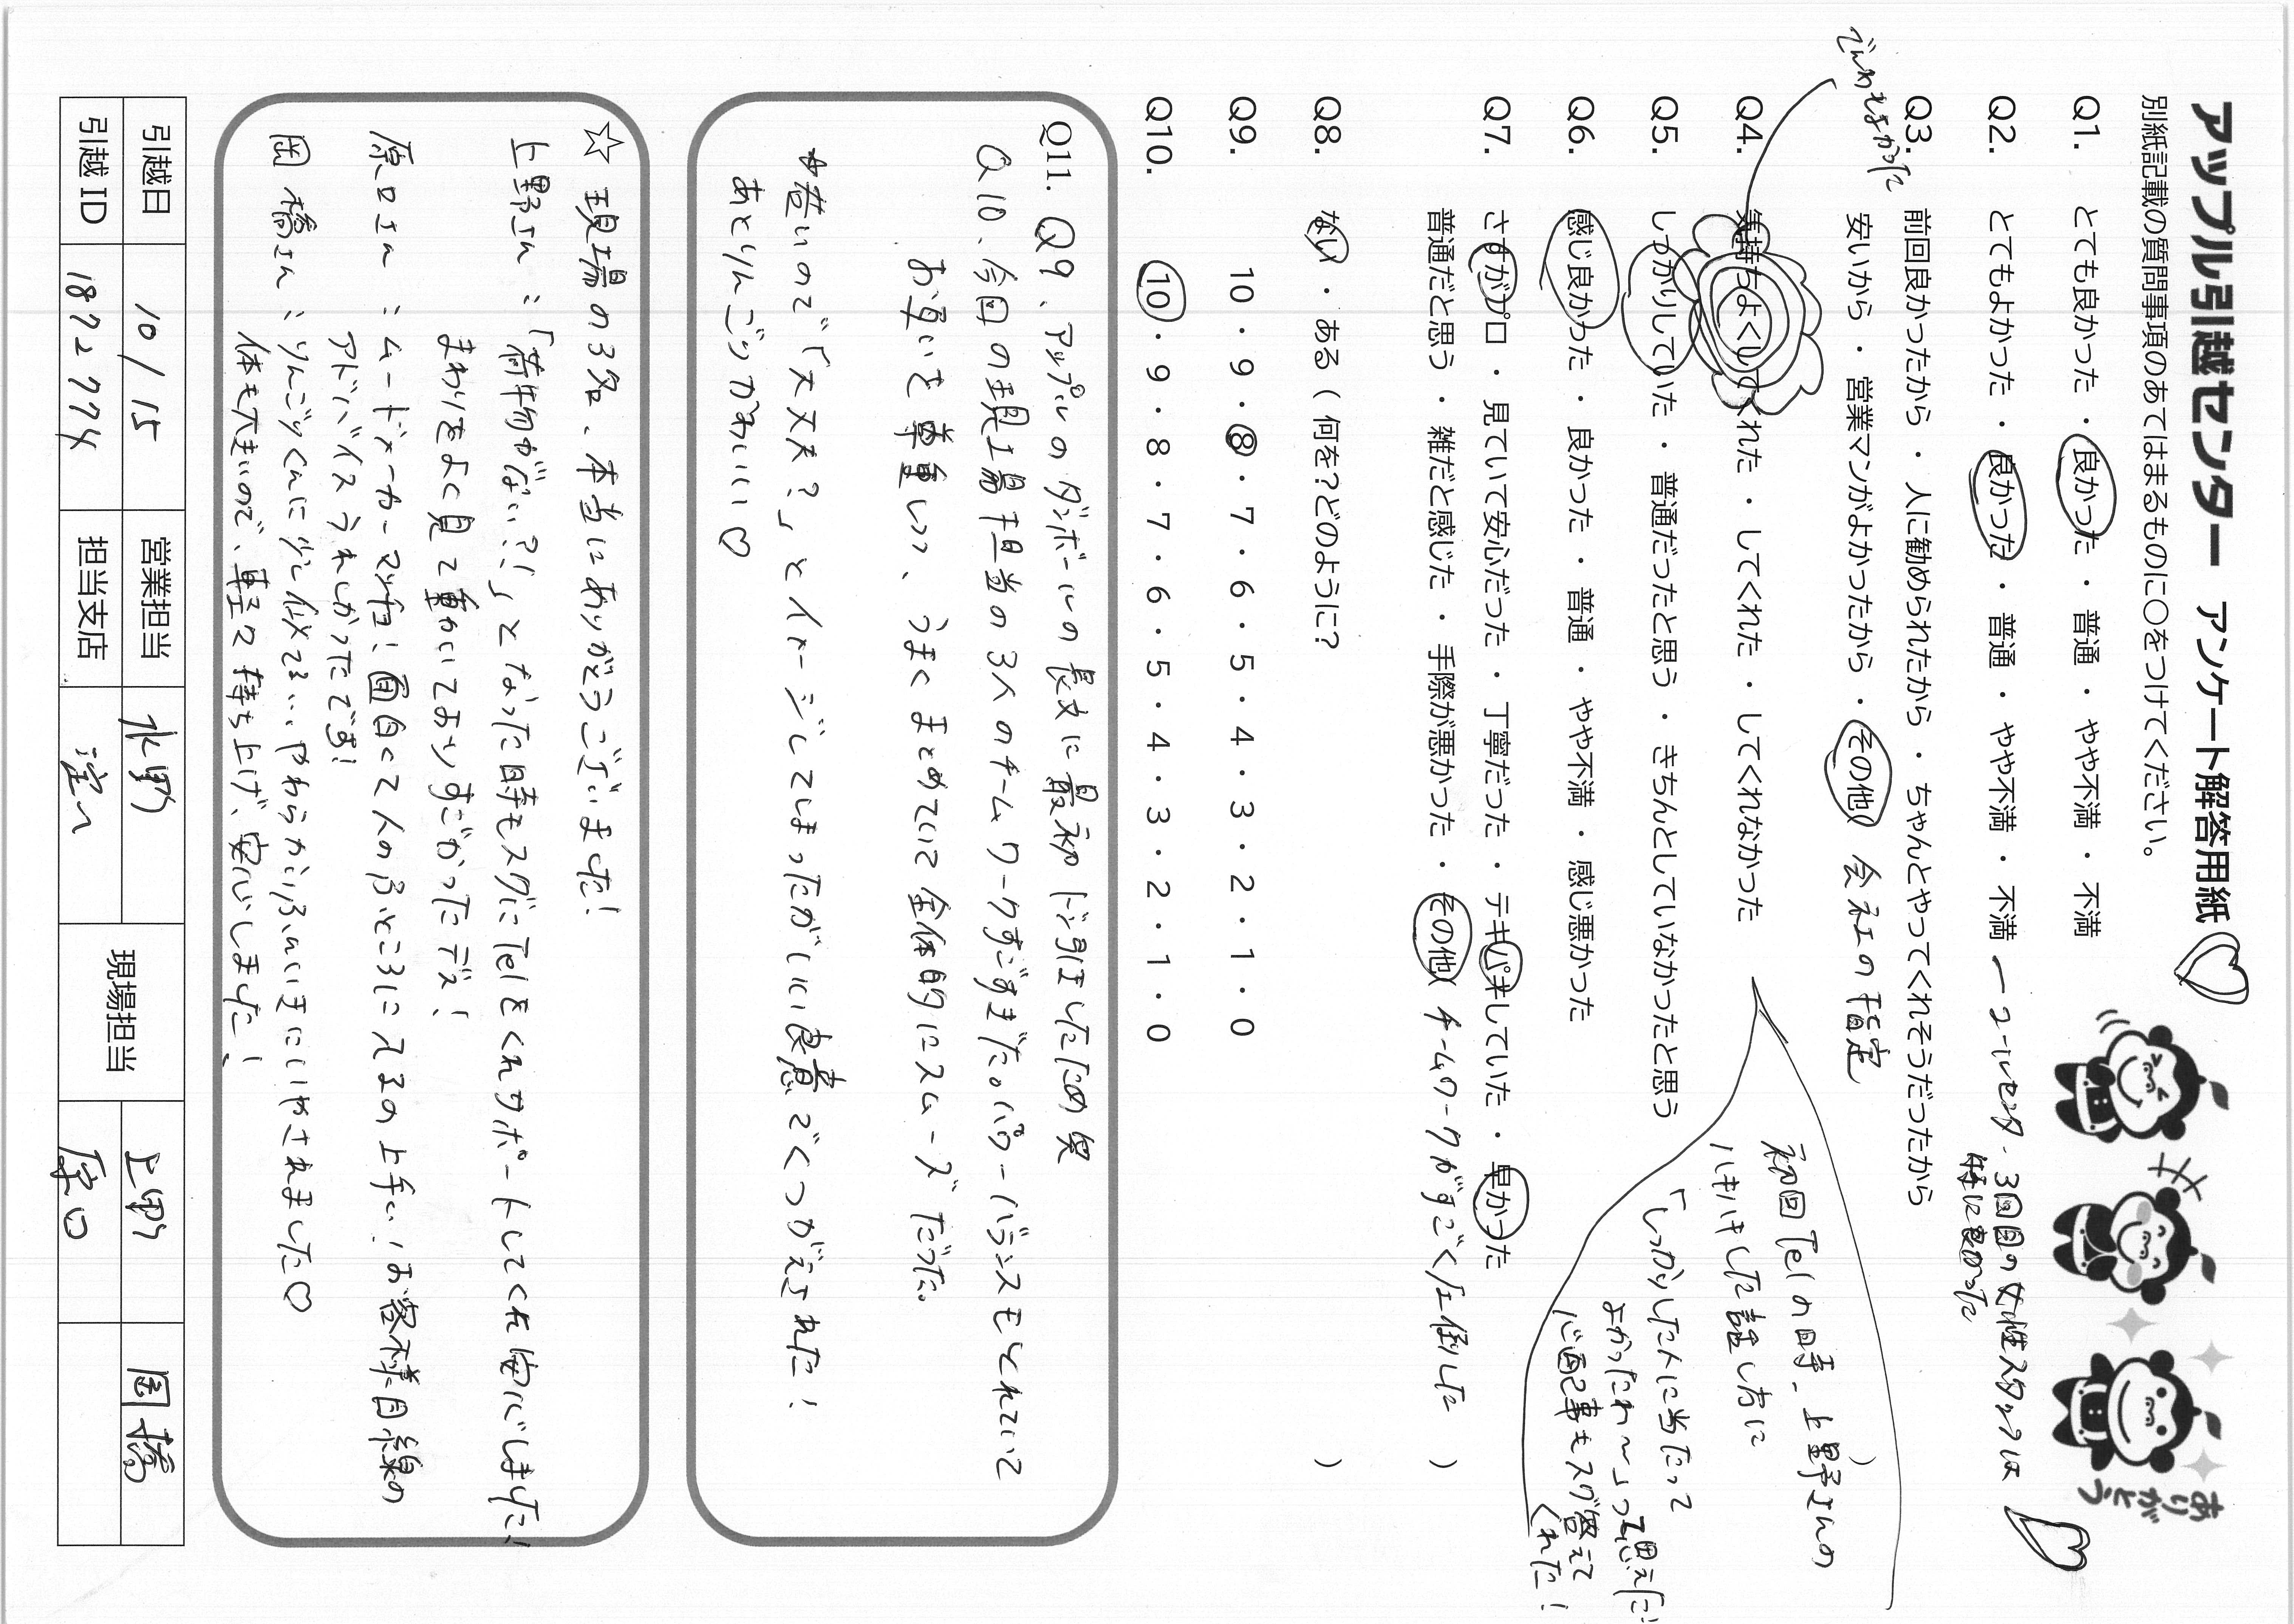 アップル引越センター アンケート解答用紙
別紙記載の質問事項のあてはまるものに○をつけてください。
ありがとう
Q1. とても良かった ・ 良かった ・ 普通 ・ やや不満 ・ 不満
Q2. とてもよかった ・ 良かった ・ 普通 ・ やや不満 ・ 不満
ー コールセンター 3回目の女性スタッフは
特に良かった
Q3. 前回良かったから ・ 人に勧められたから ・ ちゃんとやってくれそうだったから
安いから ・ 営業マンがよかったから ・ その他( 会社の指定 )
でんわもよかった
Q4. 気持ちよくしてくれた ・ してくれた ・ してくれなかった
初回Telの時、上野さんの
ハキハキした話し方に
「しっかりした人に当たって
よかったわ〜」って思えた!
心配事もスグ答えて
くれた!
Q5. しっかりしていた ・ 普通だったと思う ・ きちんとしていなかったと思う
Q6. 感じ良かった ・ 良かった ・ 普通 ・ やや不満 ・ 感じ悪かった
Q7. さすがプロ ・ 見ていて安心だった ・ 丁寧だった ・ テキパキしていた ・ 早かった
普通だと思う ・ 雑だと感じた ・ 手際が悪かった ・ その他( チームワークがすごく圧倒した )
Q8. ない ・ ある ( 何を?どのように? )
Q9. 10 ・ 9 ・ 8 ・ 7 ・ 6 ・ 5 ・ 4 ・ 3 ・ 2 ・ 1 ・ 0
Q10. 10 ・ 9 ・ 8 ・ 7 ・ 6 ・ 5 ・ 4 ・ 3 ・ 2 ・ 1 ・ 0
Q11. Q9、アップルのダンボールの長さに最初ドン引きしたため
Q10、今回の現場担当の3人のチームワークすごすぎた。パワーバランスもとれていて
お互いを尊重しつつ、うまくまとめていて全体的にスムーズだった。
「大丈夫?」とイメージしてしまったがいい意味でくつがえされた!
あとりんごりかわいい♡
☆ 現場の3名、本当にありがとうございました!
上野さん :「荷物がない?!」となった時もスグにTelをくれサポートしてくれ安心しました!
まわりをよく見て動いておりすごかったデス!
原口さん : ムードメーカーマッチョ!面白くて人のふところに入るの上手い!お客様目線の
アドバイスうれしかったです!
岡橋さん : りんごりくんに少し似てる…やわらかいふんいきにいやされました♡
体も大きいので、軽々持ち上げ、安心しました!
引越日 10/15 営業担当 水野 現場担当 上野 岡橋
引越ID 1872774 担当支店 原口